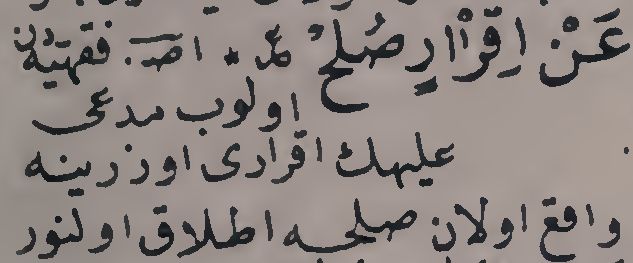 عَنْ اِقْرَارٍ صُلْحْ مد٠ اصـ. فقهيه دن
اولوب مدعى
عليهك اقرارى اوزرينه
واقع اولان صلحه اطلاق اولنور